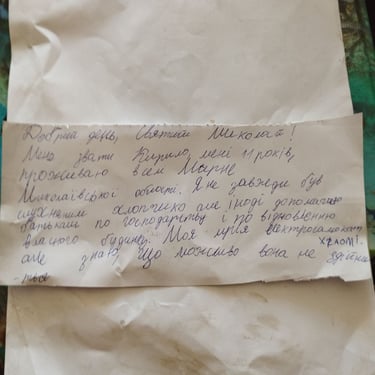 Добрий день, Святий Миколаю!
Мене звати Кирило, мені 11 років,
проживаю в селі Мирне
Миколаївської області. Я не завжди був
слухняним хлопчиком але іноді допомагаю
батькам по господарству і по відновленню
власного будинку. Моя мрія електросамокат
XIAOMI.
але знаю, що можливо вона не здійсни
-ться